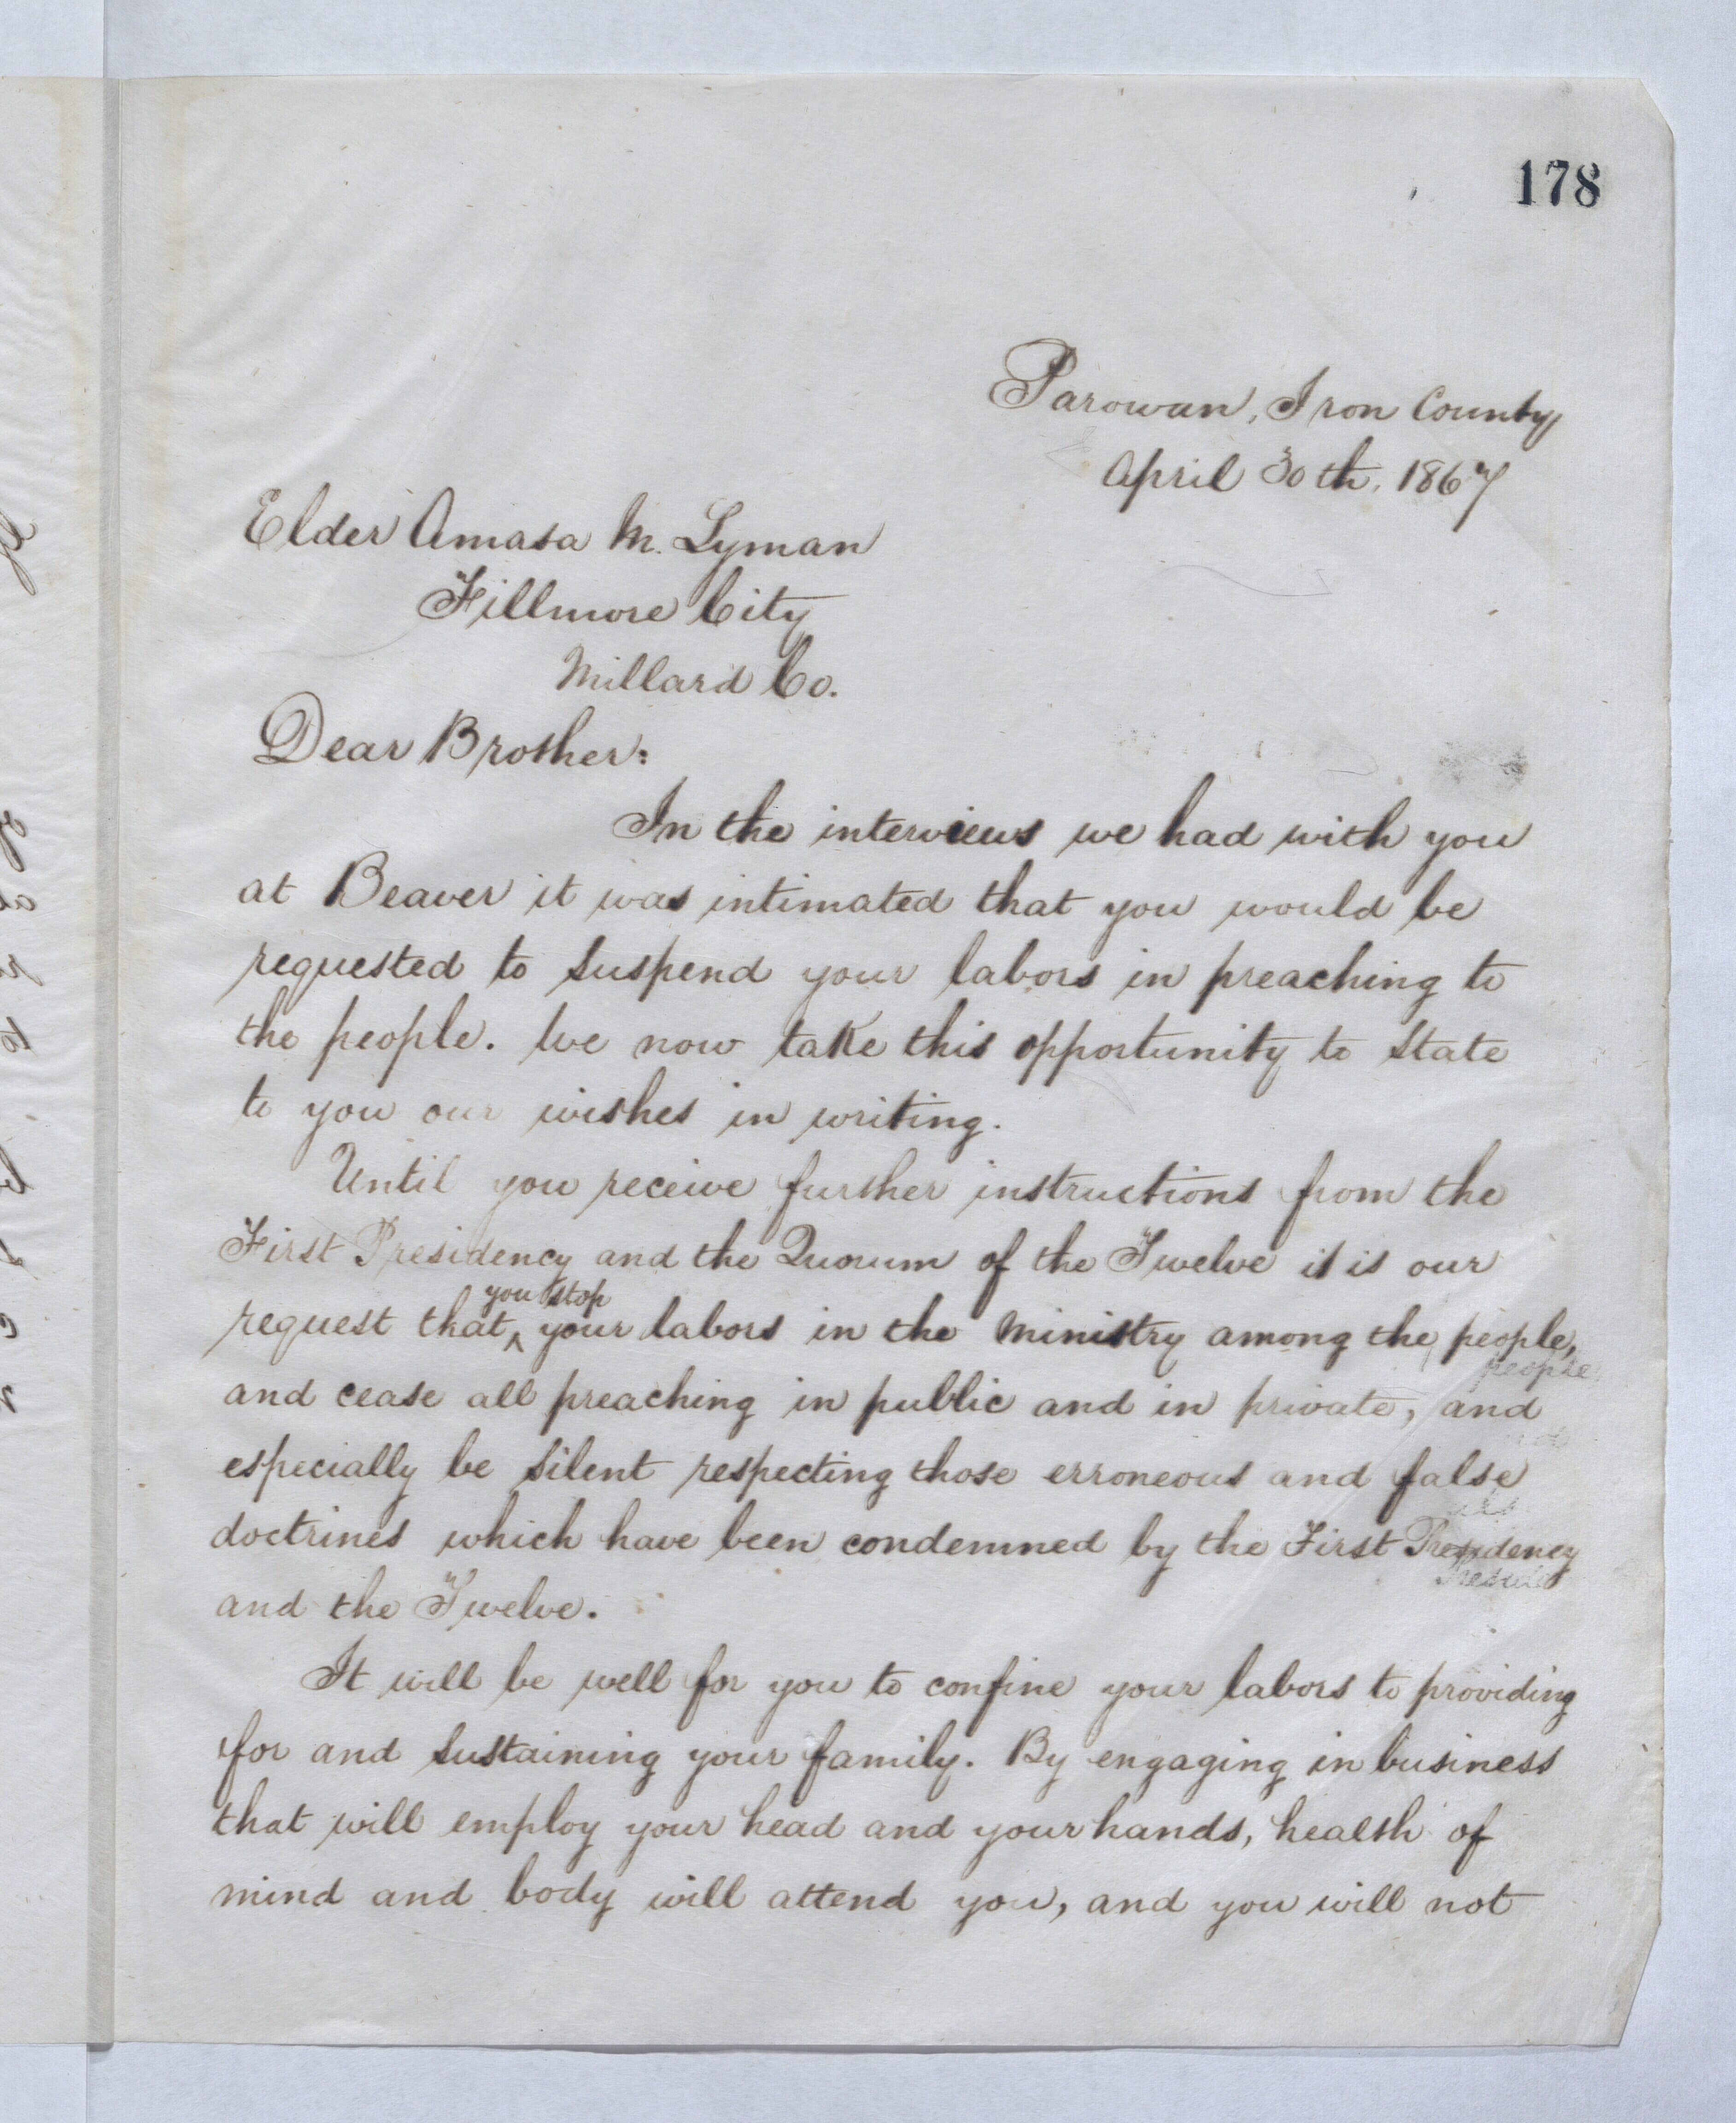 178
Parowan, Iron County
April 30th, 1867
Elder Amasa M. Lyman
Fillmore City
Millard Co.
Dear Brother:
In the interviews we had with you
at Beaver it was intimated that you would be
requested to suspend your labors in preaching to
the people. We now take this opportunity to state
to you our wishes in writing.
Until you receive further instructions from the
First Presidency and the Quorum of the Twelve it is our
you stop
request that ‸ your labors in the ministry among the people,
people
and cease all preaching in public and in private, and
especially be silent respecting those erroneous and false
doctrines which have been condemned by the First Presidency
and the Twelve.
It will be well for you to confine your labors to providing
for and sustaining your family. By engaging in business
that will employ your head and your hands, health of
mind and body will attend you, and you will not